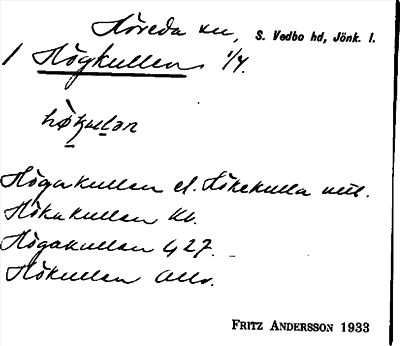 Höreda sn, S. Vedbo hd, Jönk. l.
1 Högkullen 1/4.
Högakullen el. Hökekulla
Hökakullen Kb.
Högakullen 427.
Hökullen Allm.
FRITZ ANDERSSON 1933